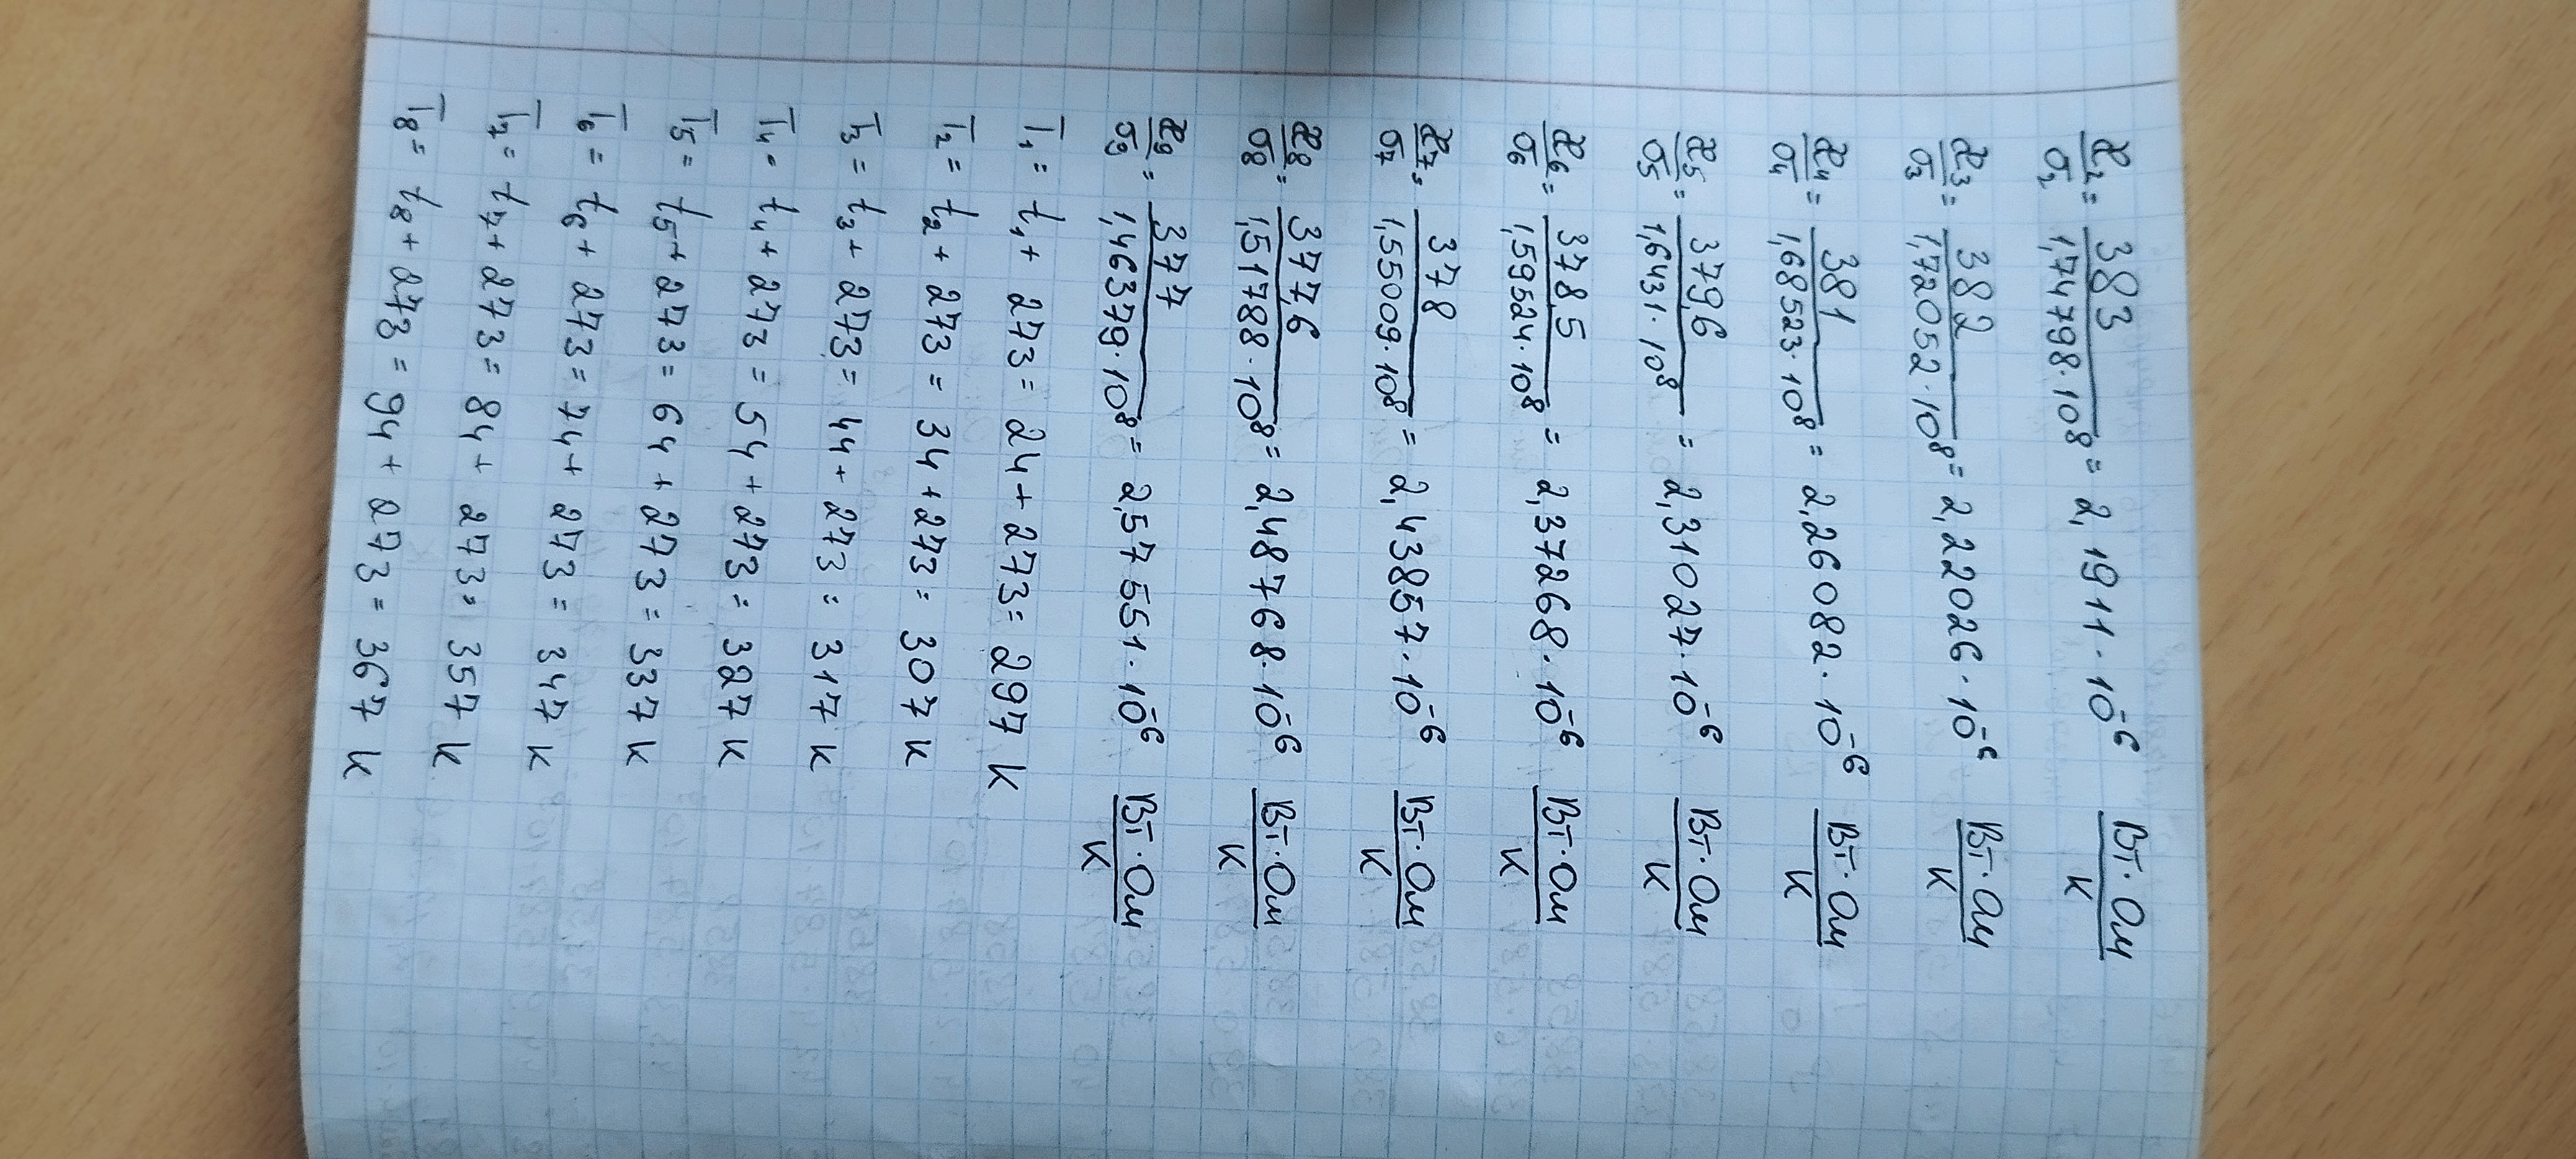 æ2/σ2 = 383/1,74798·10⁸ = 2,1911·10⁻⁶ Вт·Ом/К
æ3/σ3 = 382/1,72052·10⁸ = 2,22026·10⁻⁶ Вт·Ом/К
æ4/σ4 = 381/1,68523·10⁸ = 2,26082·10⁻⁶ Вт·Ом/К
æ5/σ5 = 379,6/1,6431·10⁸ = 2,31027·10⁻⁶ Вт·Ом/К
æ6/σ6 = 378,5/1,59524·10⁸ = 2,37268·10⁻⁶ Вт·Ом/К
æ7/σ7 = 378/1,55009·10⁸ = 2,43857·10⁻⁶ Вт·Ом/К
æ8/σ8 = 377,6/1,51788·10⁸ = 2,48768·10⁻⁶ Вт·Ом/К
æ9/σ9 = 377/1,46379·10⁸ = 2,57551·10⁻⁶ Вт·Ом/К
T₁ = t₁ + 273 = 24 + 273 = 297 К
T₂ = t₂ + 273 = 34 + 273 = 307 К
T₃ = t₃ + 273 = 44 + 273 = 317 К
T₄ = t₄ + 273 = 54 + 273 = 327 К
T₅ = t₅ + 273 = 64 + 273 = 337 К
T₆ = t₆ + 273 = 74 + 273 = 347 К
T₇ = t₇ + 273 = 84 + 273 = 357 К
T₈ = t₈ + 273 = 94 + 273 = 367 К